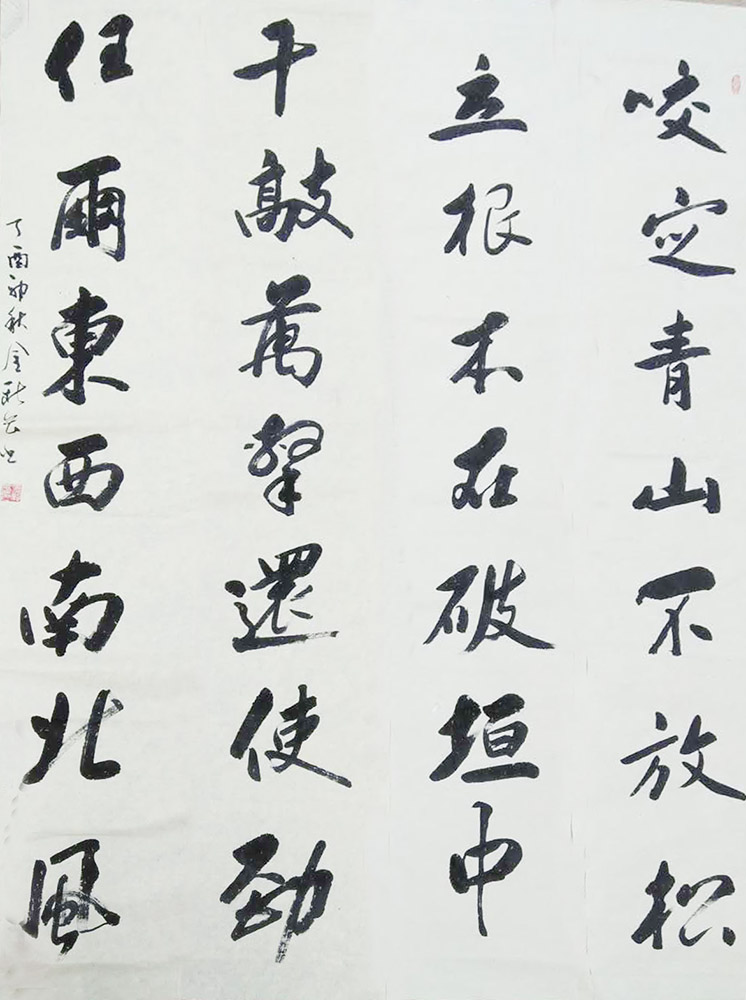 咬定青山不放松
立根木在破垣中
千敲萬擊還使勁
任爾東西南北風
丁酉初秋金